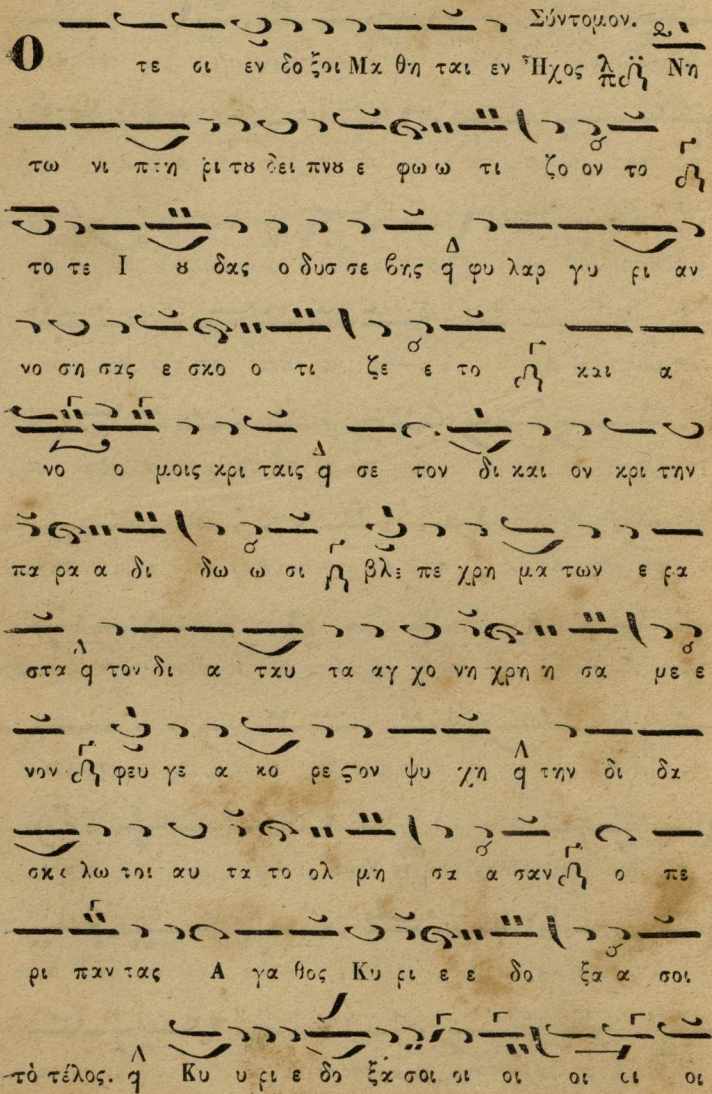 Σύντομον.
Ο τε οι εν δο ξοι Μα θη ται εν Ἦχος λ π Νη
τω νι πτη ρι του δει πνου ε φω ω τι ζο ον το
το τε Ι ου δας ο δυσ σε βης φυ λαρ γυ ρι αν
νο ση σας ε σκο ο τι ζε ε το και α
νο ο μοις κρι ταις σε τον δι και ον κρι την
πα ρα α δι δω ω σι βλε πε χρη μα των ε ρα
στα τον δι α ταυ τα αγ χο νη χρη η σα με ε
νον φευ γε α κο ρε ϛον ψυ χη την δι δα
σκα λω τοι αυ τα το ολ μη σα α σαν ο πε
ρι παν τας Α γα θος Κυ ρι ε ε δο ξα α σοι
τὸ τέλος. Κυ υ ρι ε δο ξα σοι οι οι οι οι οι